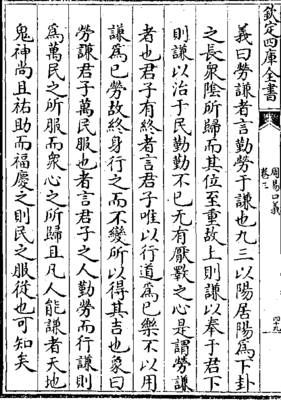 欽定四庫全書
周易口義
卷三
義曰勞謙者言勤勞于謙也九三以陽居陽為下卦
之長衆陰所歸而其位至重故上則謙以奉于君下
則謙以治于民勤勤不已无有厭斁之心是謂勞謙
者也君子有終者言君子唯以行道為已樂不以用
謙為已勞故終身行之而不變所以得其吉也象曰
勞謙君子萬民服也者言君子之人勤勞而行謙則
為萬民之所服而衆心之所歸且凡人能謙者天地
鬼神尚且祐助而福慶之則民之服從也可知矣